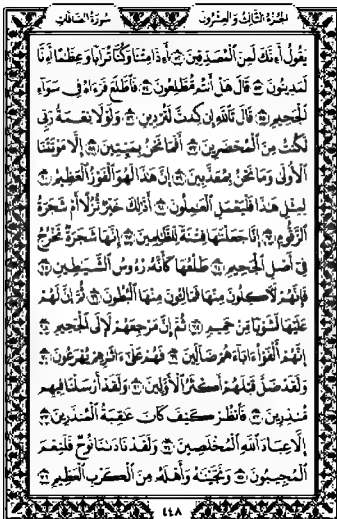 سُورَةُ الصَّافَّاتِ
الجُزْءُ الثَّالِثُ وَالعِشْرُونَ
يَقُولُ أَءِنَّكَ لَمِنَ ٱلْمُصَدِّقِينَ ٥٢ أَءِذَا مِتْنَا وَكُنَّا تُرَابًا وَعِظَٰمًا أَءِنَّا
لَمَدِينُونَ ٥٣ قَالَ هَلْ أَنتُم مُّطَّلِعُونَ ٥٤ فَٱطَّلَعَ فَرَءَاهُ فِى سَوَآءِ
ٱلْجَحِيمِ ٥٥ قَالَ تَٱللَّهِ إِن كِدتَّ لَتُرْدِينِ ٥٦ وَلَوْلَا نِعْمَةُ رَبِّى
لَكُنتُ مِنَ ٱلْمُحْضَرِينَ ٥٧ أَفَمَا نَحْنُ بِمَيِّتِينَ ٥٨ إِلَّا مَوْتَتَنَا
ٱلْأُولَىٰ وَمَا نَحْنُ بِمُعَذَّبِينَ ٥٩ إِنَّ هَٰذَا لَهُوَ ٱلْفَوْزُ ٱلْعَظِيمُ ٦٠
لِمِثْلِ هَٰذَا فَلْيَعْمَلِ ٱلْعَٰمِلُونَ ٦١ أَذَٰلِكَ خَيْرٌ نُّزُلًا أَمْ شَجَرَةُ
ٱلزَّقُّومِ ٦٢ إِنَّا جَعَلْنَٰهَا فِتْنَةً لِّلظَّٰلِمِينَ ٦٣ إِنَّهَا شَجَرَةٌ تَخْرُجُ
فِىٓ أَصْلِ ٱلْجَحِيمِ ٦٤ طَلْعُهَا كَأَنَّهُۥ رُءُوسُ ٱلشَّيَٰطِينِ ٦٥
فَإِنَّهُمْ لَءَاكِلُونَ مِنْهَا فَمَالِـُٔونَ مِنْهَا ٱلْبُطُونَ ٦٦ ثُمَّ إِنَّ لَهُمْ
عَلَيْهَا لَشَوْبًا مِّنْ حَمِيمٍ ٦٧ ثُمَّ إِنَّ مَرْجِعَهُمْ لَإِلَى ٱلْجَحِيمِ ٦٨
إِنَّهُمْ أَلْفَوْا۟ ءَابَآءَهُمْ ضَآلِّينَ ٦٩ فَهُمْ عَلَىٰٓ ءَاثَٰرِهِمْ يُهْرَعُونَ ٧٠
وَلَقَدْ ضَلَّ قَبْلَهُمْ أَكْثَرُ ٱلْأَوَّلِينَ ٧١ وَلَقَدْ أَرْسَلْنَا فِيهِم
مُّنذِرِينَ ٧٢ فَٱنظُرْ كَيْفَ كَانَ عَٰقِبَةُ ٱلْمُنذَرِينَ ٧٣
إِلَّا عِبَادَ ٱللَّهِ ٱلْمُخْلَصِينَ ٧٤ وَلَقَدْ نَادَىٰنَا نُوحٌ فَلَنِعْمَ
ٱلْمُجِيبُونَ ٧٥ وَنَجَّيْنَٰهُ وَأَهْلَهُۥ مِنَ ٱلْكَرْبِ ٱلْعَظِيمِ ٧٦
٤٤٨